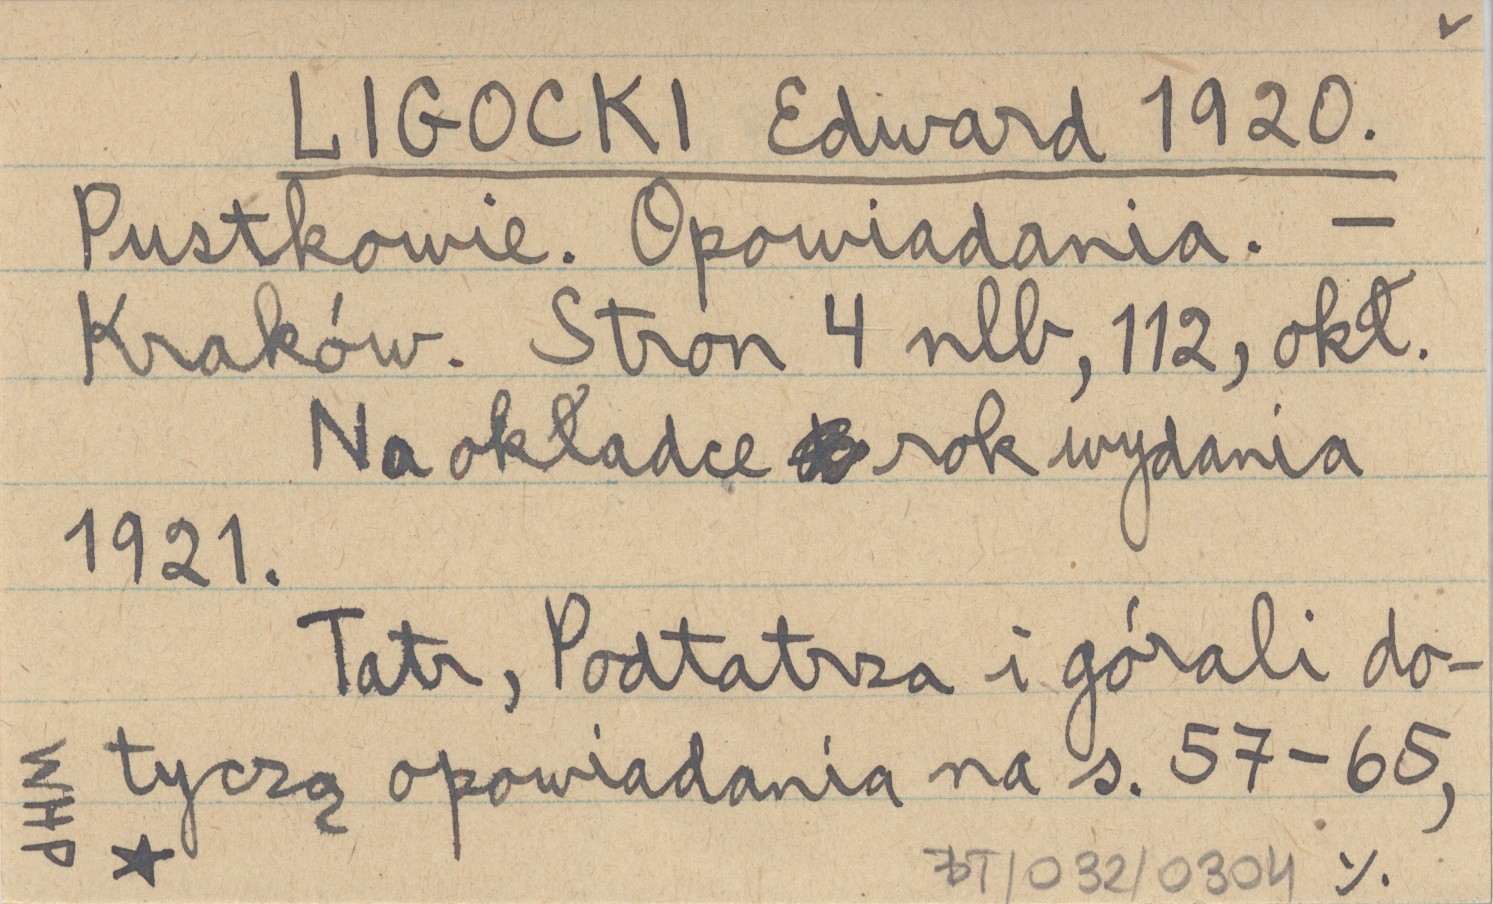 LIGOCKI Edward 1920.
Pustkowie. Opowiadania. —
Kraków. Stron 4 nlb, 112, okł.
Na okładce rok wydania
1921.
Tatr, Podtatrza i górali do-
tyczą opowiadania na s. 57-65,
WHP
/032/0304